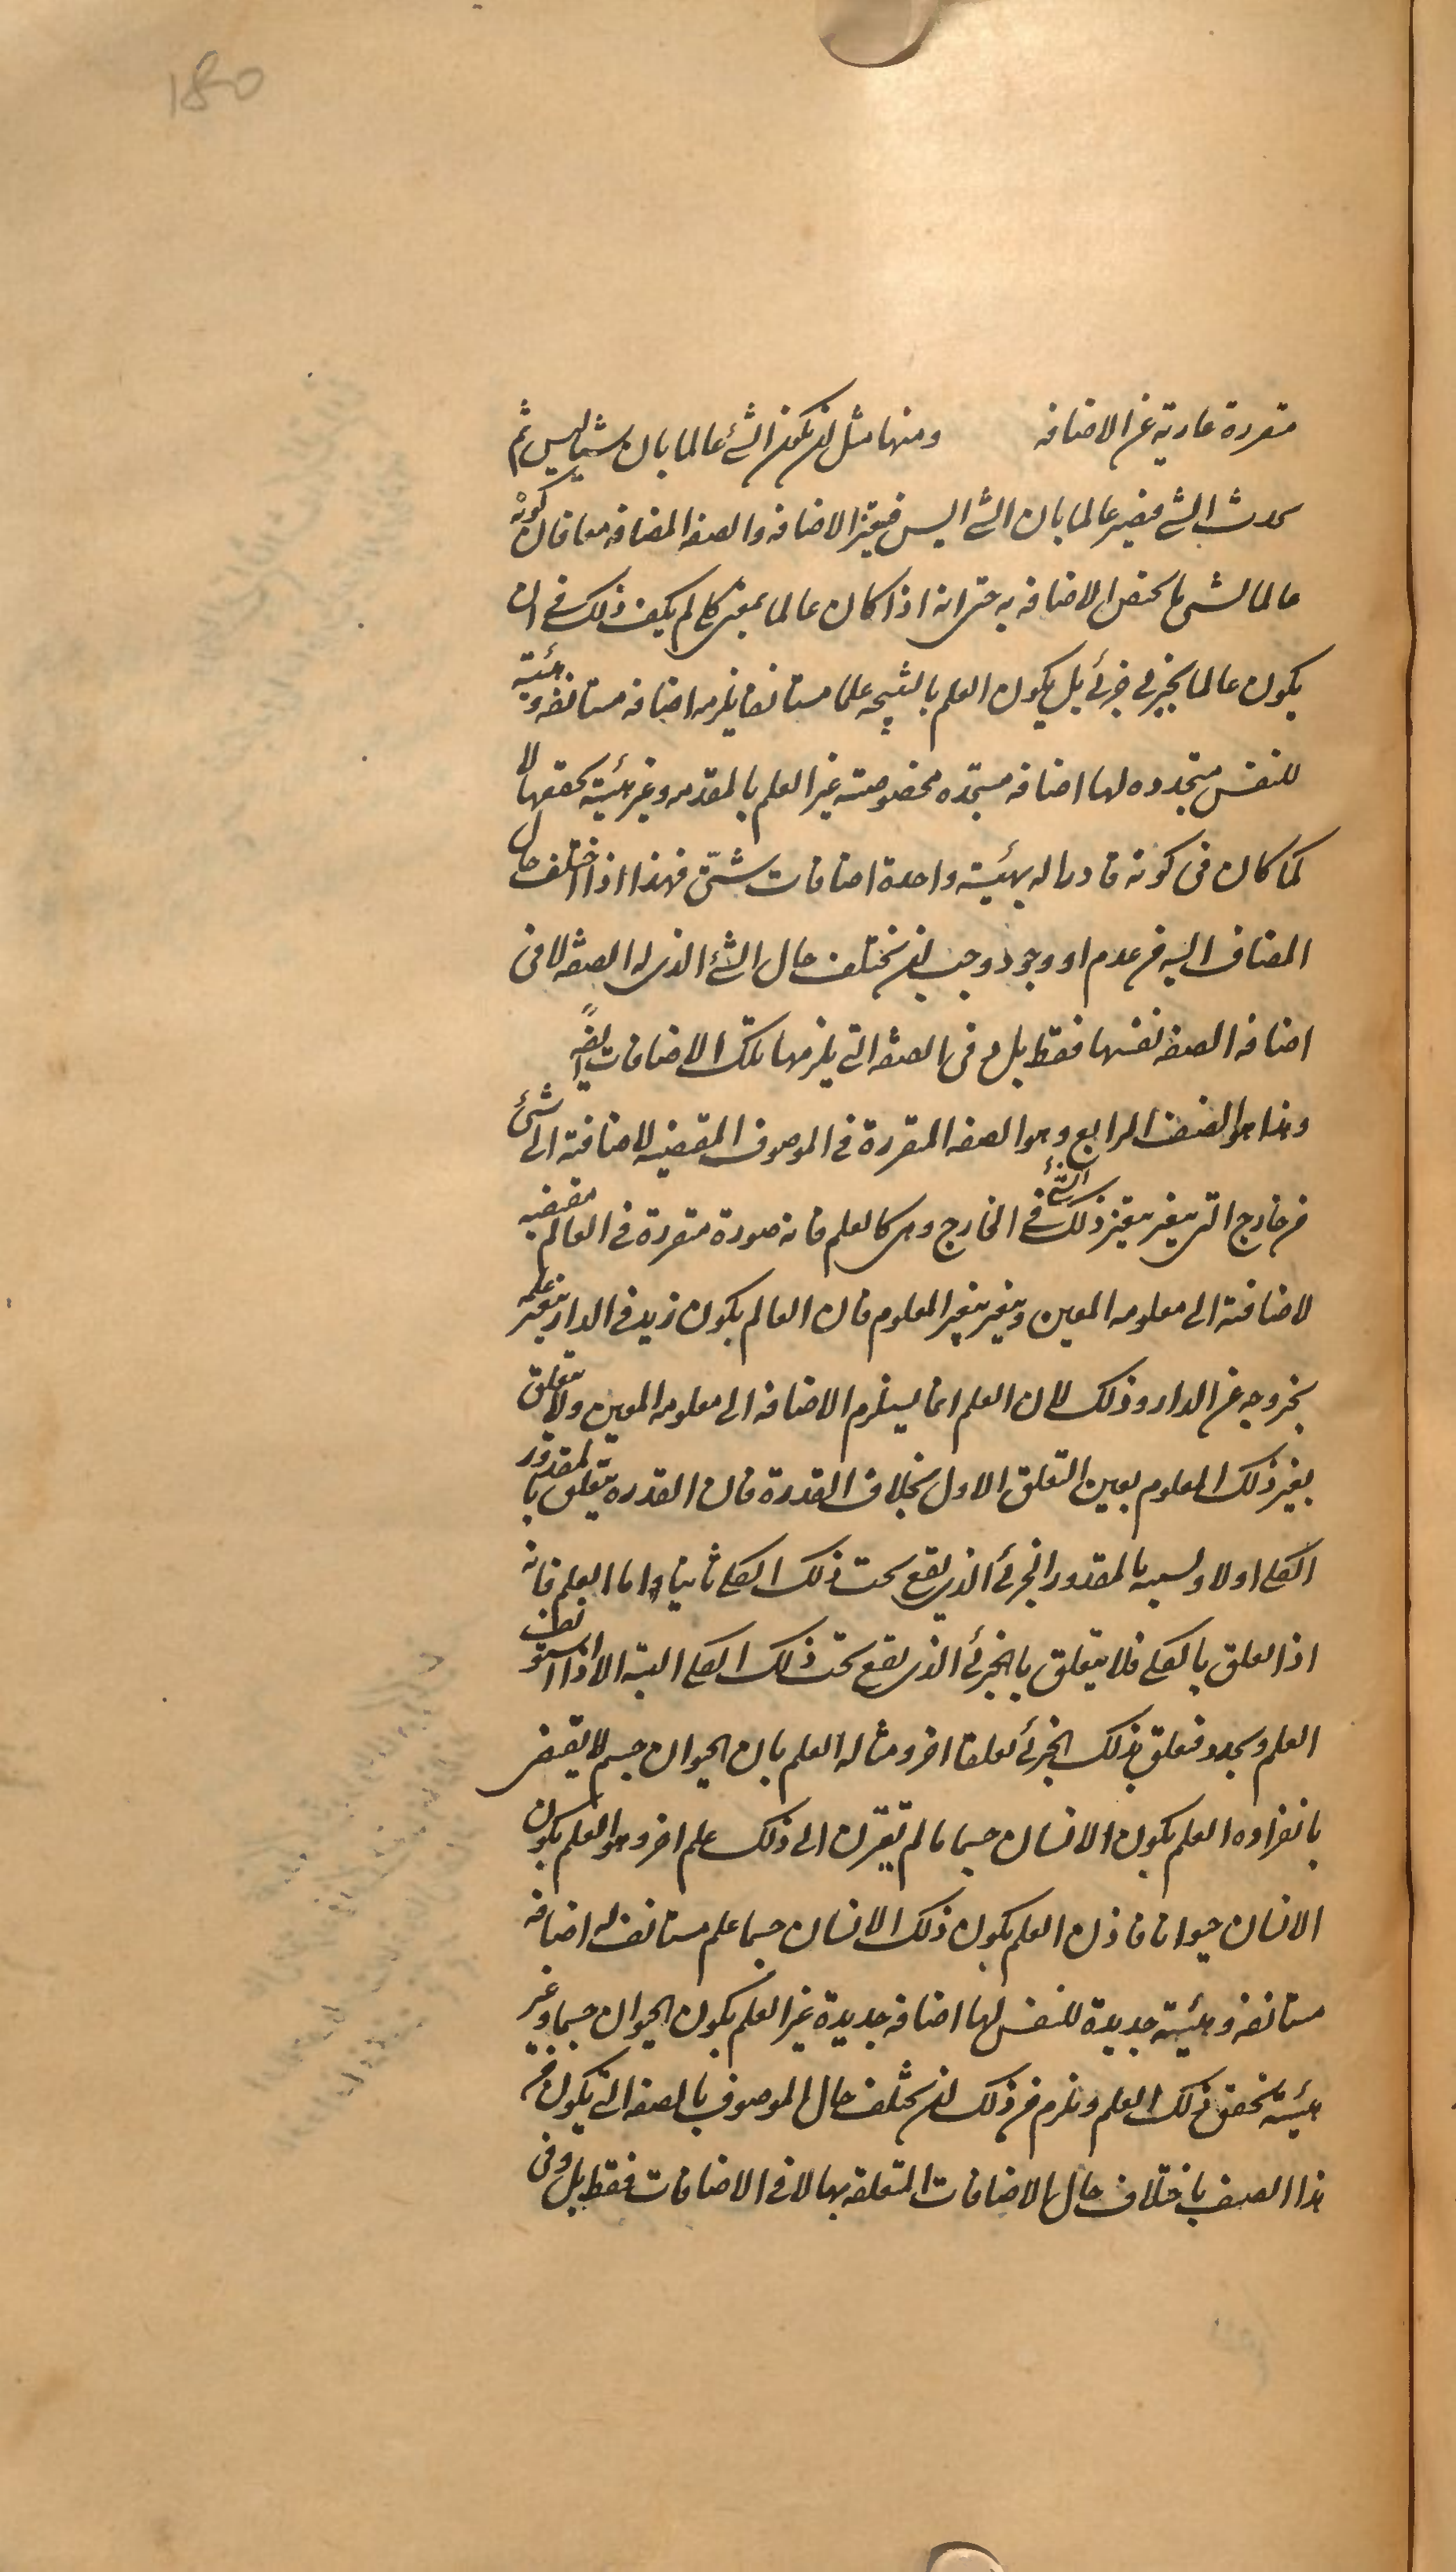 180
متقررة عارية عن الاضافه ومنها مثل ان يكون الشئ عالما بان شيئا ليس ثم
يحدث الشئ فيصير عالما بان الشئ ايس فيتغير الاضافه والصفه المضافه معا فان كونه
عالما لشئ ما يختص الاضافه به حتى انه اذا كان عالما بمعنى كلى لم يكف ذلك فى ان
يكون عالما بجزئى جزئى بل يكون العلم بالنتيجه علما مستانفا يلزمه اضافه مستانفه وهيئة
للنفس متجدده لها اضافه مستجده مخصوصته غير العلم بالمقدمه وغير هيئة تحققها لا
كما كان فى كونه قادرا له بهيئة واحدة اضافات شتى فهذا اذا اختلف حال
المضاف اليه من عدم او وجود وجب ان يختلف حال الشئ الذى له الصفه لا فى
اضافه الصفه نفسها فقط بل و فى الصفه التى يلزمها تلك الاضافات ايضً
وهذا هو الصنف الرابع وهو الصفه المتقررة فى الموصوف المقتضيه لاضافته الى شئ
من خارج التى يتغير بتغير ذلك الشئ فى الخارج وهى كالعلم فانه صورة متقررة فى العالم مقتضيه
لاضافته الى معلومه المعين ويتغير بتغير المعلوم فان العالم بكون زيد فى الدار يتغير علمه
بخروجه عن الدار وذلك لان العلم انما يستلزم الاضافه الى معلومه المعين ولا يتعلق
بغير ذلك المعلوم بعين التعلق الاول بخلاف القدرة فان القدره يتعلق بالمقدور
الكلى اولا وبسببه بالمقدور الجزئى الذى يقع تحت ذلك الكلى ثانيا واما العلم فانه
اذا تعلق بالكلى فلا يتعلق بالجزئى الذى يقع تحت ذلك الكلى البته الا اذا استونف
العلم وتجدد فتعلق بذلك الجزئى تعلقا اخر ومثاله العلم بان الحيوان جسم لا يقتضى
بانفراده العلم بكون الانسان جسما ما لم يقترن الى ذلك علم اخر وهو العلم بكون
الانسان حيوانا فاذن العلم بكون ذلك الانسان جسما علم مستانف له اضافه
مستانفه وهيئة جديدة للنفس لها اضافه جديدة غير العلم بكون الحيوان جسما وغير
هيئة تحقق ذلك العلم ويلزم من ذلك ان يختلف حال الموصوف بالصفه التى يكون من
هذا الصنف باختلاف حال الاضافات المتعلقه بها لا فى الاضافات فقط بل وفى